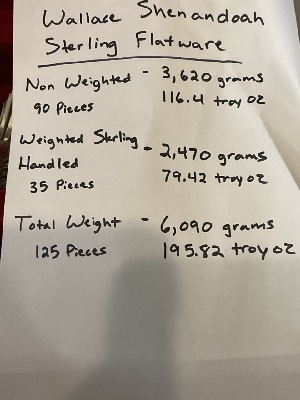 Wallace Shenandoah
Sterling Flatware
Non Weighted - 3,620 grams
90 Pieces 116.4 troy oz
Weighted Sterling
Handled - 2,470 grams
35 Pieces 79.42 troy oz
Total Weight - 6,090 grams
125 Pieces 195.82 troy oz